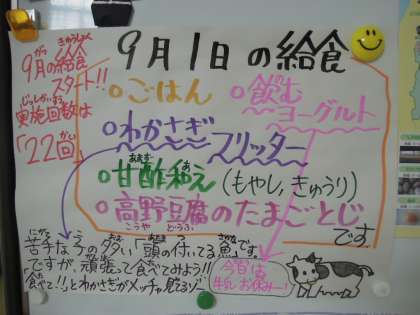 9月1日の給食
9月の給食
スタート!!
実施回数は
「22回」
ごはん
飲む
ヨーグルト
わかさぎ
フリッター
甘酢和え(もやし,きゅうり)
高野豆腐のたまごとじ
です
苦手な子の多い「頭の付いてる魚」です。
ですが、頑張って食べてみよう!!
「食べて!!」とわかさぎがメッチャ見てるゾ
今日は
牛乳お休みー!